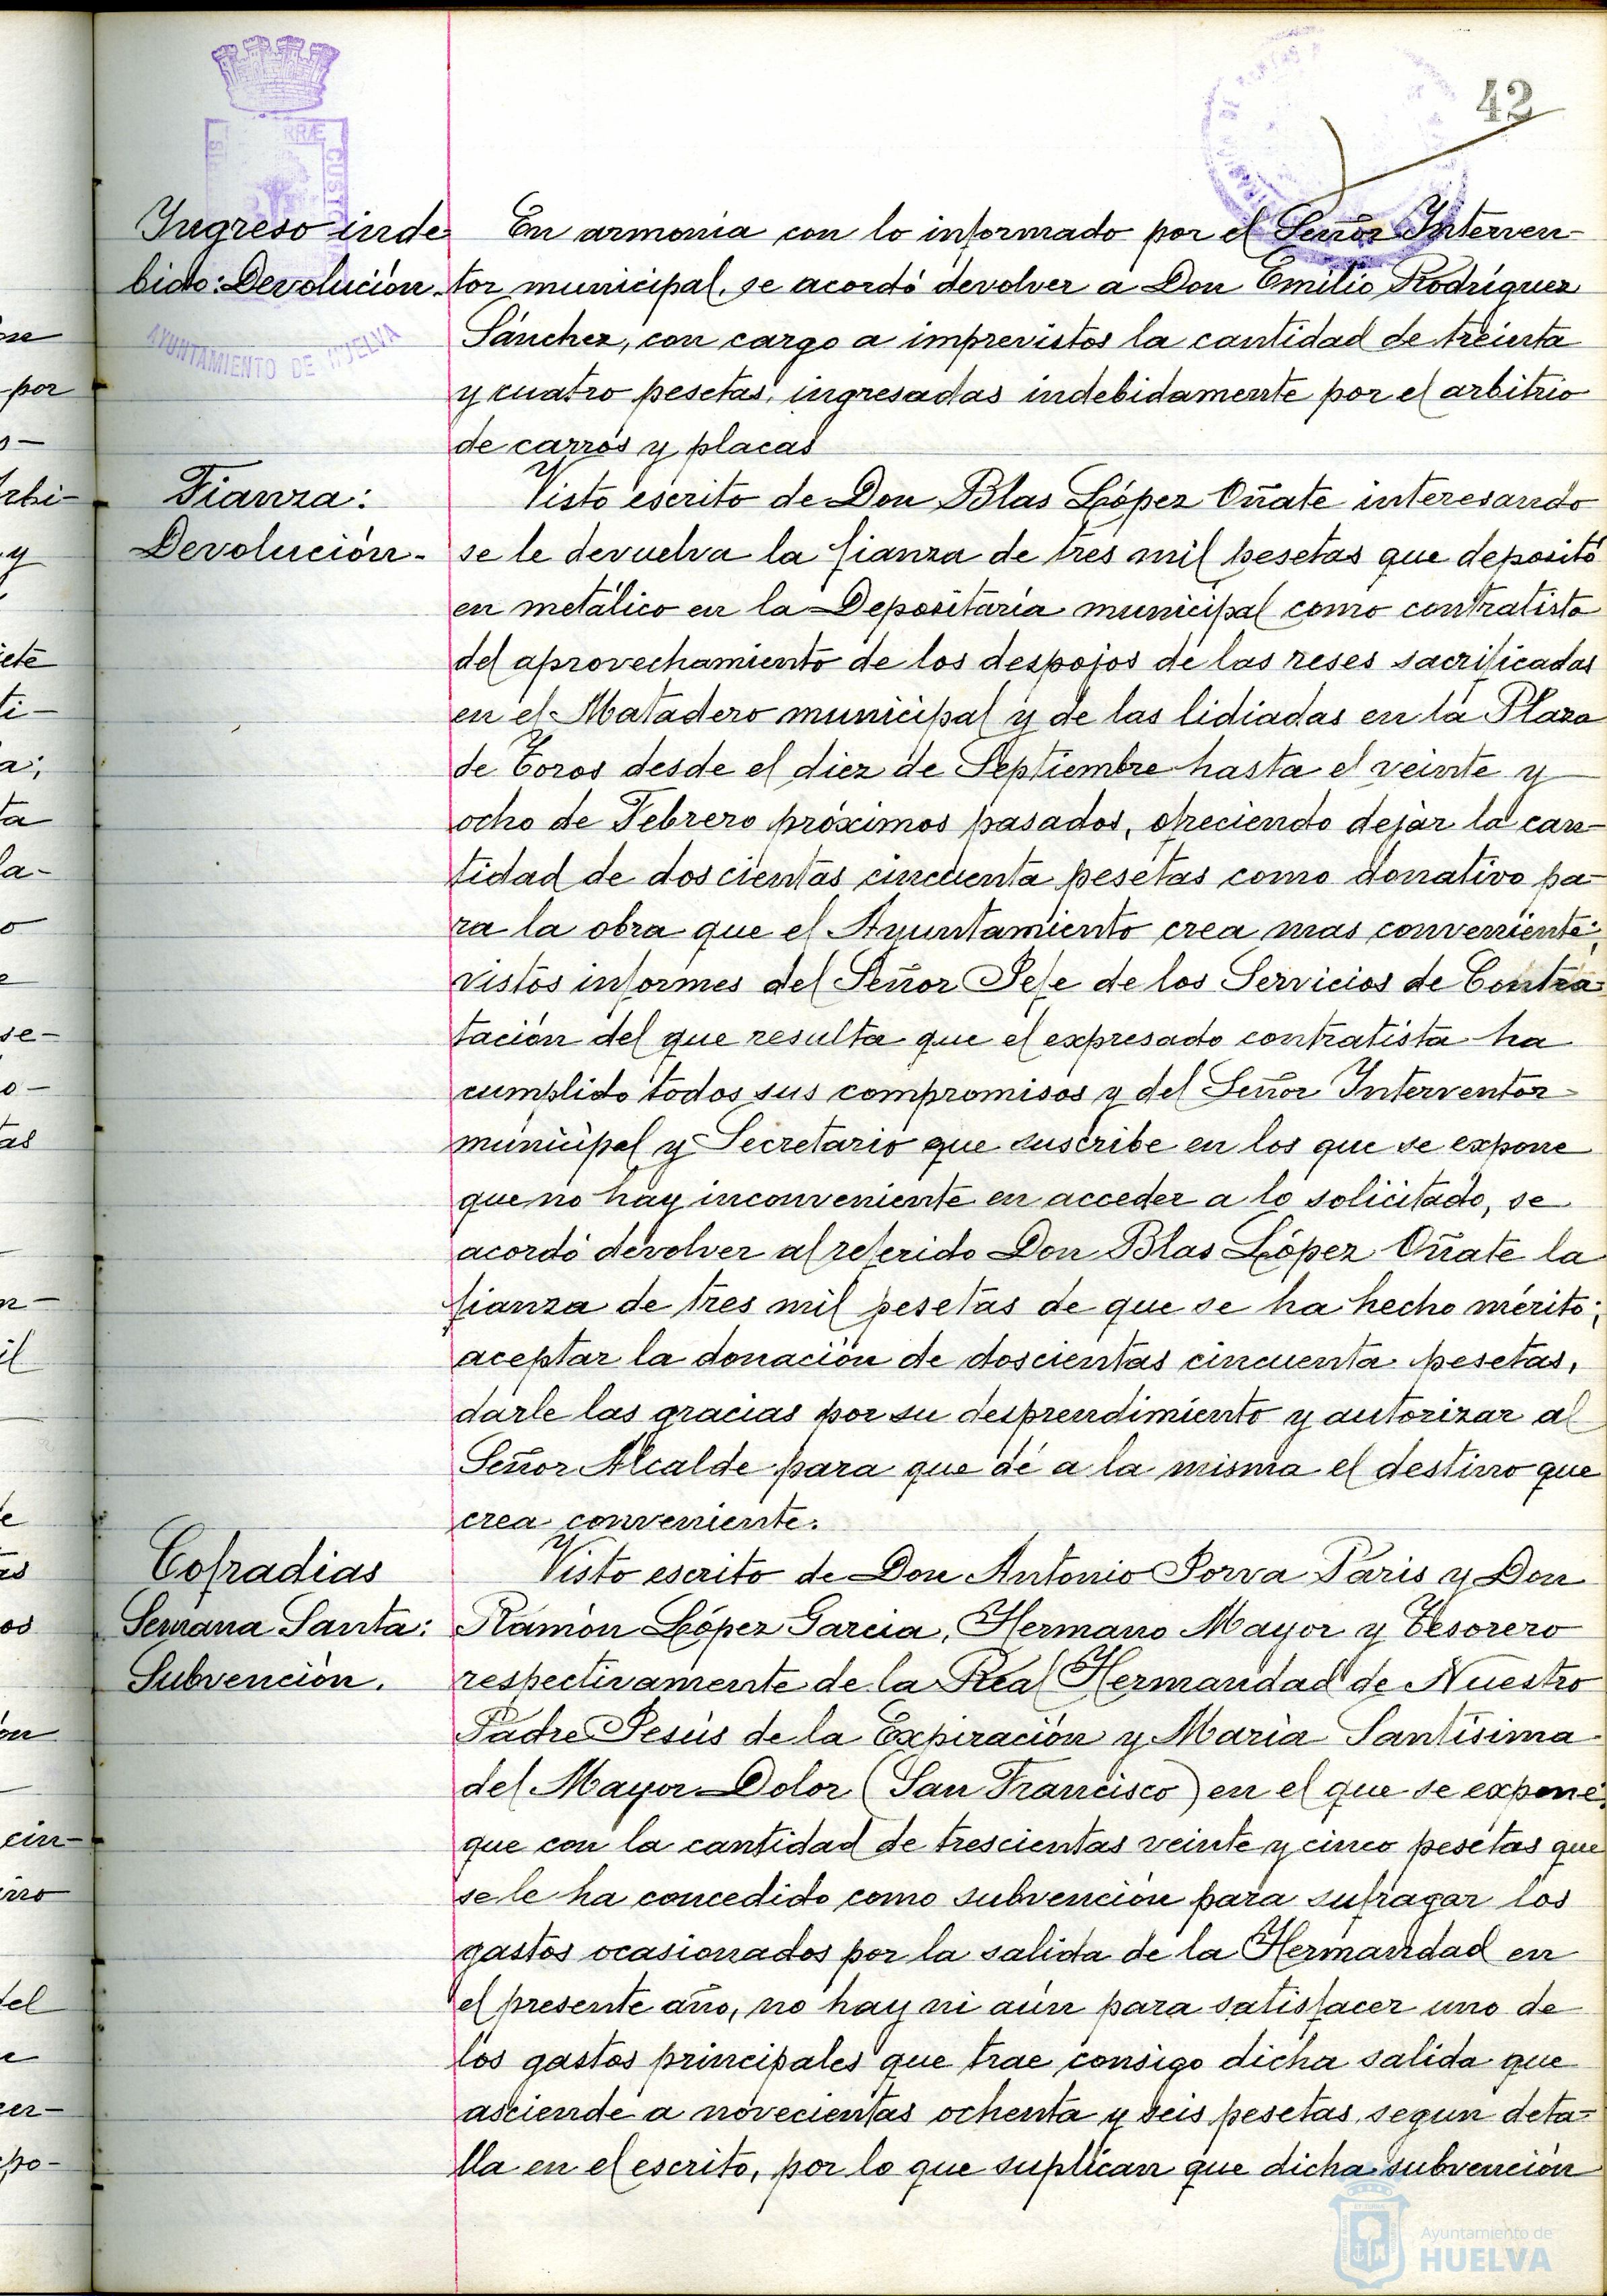 42
Ingreso inde
bido: Devolución.
En armonía con lo informado por el Señor Interven-
tor municipal, se acordó devolver a Don Emilio Rodríguez
Sánchez, con cargo a imprevistos la cantidad de treinta
y cuatro pesetas, ingresadas indebidamente por el arbitrio
de carros y placas
Fianza:
Devolución.
Visto escrito de Don Blas López Oñate interesando
se le devuelva la fianza de tres mil pesetas que depositó
en metálico en la Depositaría municipal como contratista
del aprovechamiento de los despojos de las reses sacrificadas
en el Matadero municipal y de las lidiadas en la Plaza
de Toros desde el diez de Septiembre hasta el veinte y
ocho de Febrero próximos pasados, ofreciendo dejar la can-
tidad de doscientas cincuenta pesetas como donativo pa-
ra la obra que el Ayuntamiento crea mas conveniente;
vistos informes del Señor Jefe de los Servicios de Contra-
tación del que resulta que el expresado contratista ha
cumplido todos sus compromisos y del Señor Interventor
municipal y Secretario que suscribe en los que se expone
que no hay inconveniente en acceder a lo solicitado, se
acordó devolver al referido Don Blas López Oñate la
fianza de tres mil pesetas de que se ha hecho mérito;
aceptar la donación de doscientas cincuenta pesetas,
darle las gracias por su desprendimiento y autorizar al
Señor Alcalde para que dé a la misma el destino que
crea conveniente.
Cofradias
Semana Santa:
Subvención.
Visto escrito de Don Antonio Jorva Paris y Don
Ramón López García, Hermano Mayor y Tesorero
respectivamente de la Real Hermandad de Nuestro
Padre Jesús de la Expiración y María Santísima
del Mayor Dolor (San Francisco) en el que se expone
que con la cantidad de trescientas veinte y cinco pesetas que
se le ha concedido como subvención para sufragar los
gastos ocasionados por la salida de la Hermandad en
el presente año, no hay ni aún para satisfacer uno de
los gastos principales que trae consigo dicha salida que
asciende a novecientas ochenta y seis pesetas segun deta-
lla en el escrito, por lo que suplican que dicha subvención
AYUNTAMIENTO DE HUELVA
Ayuntamiento de
HUELVA